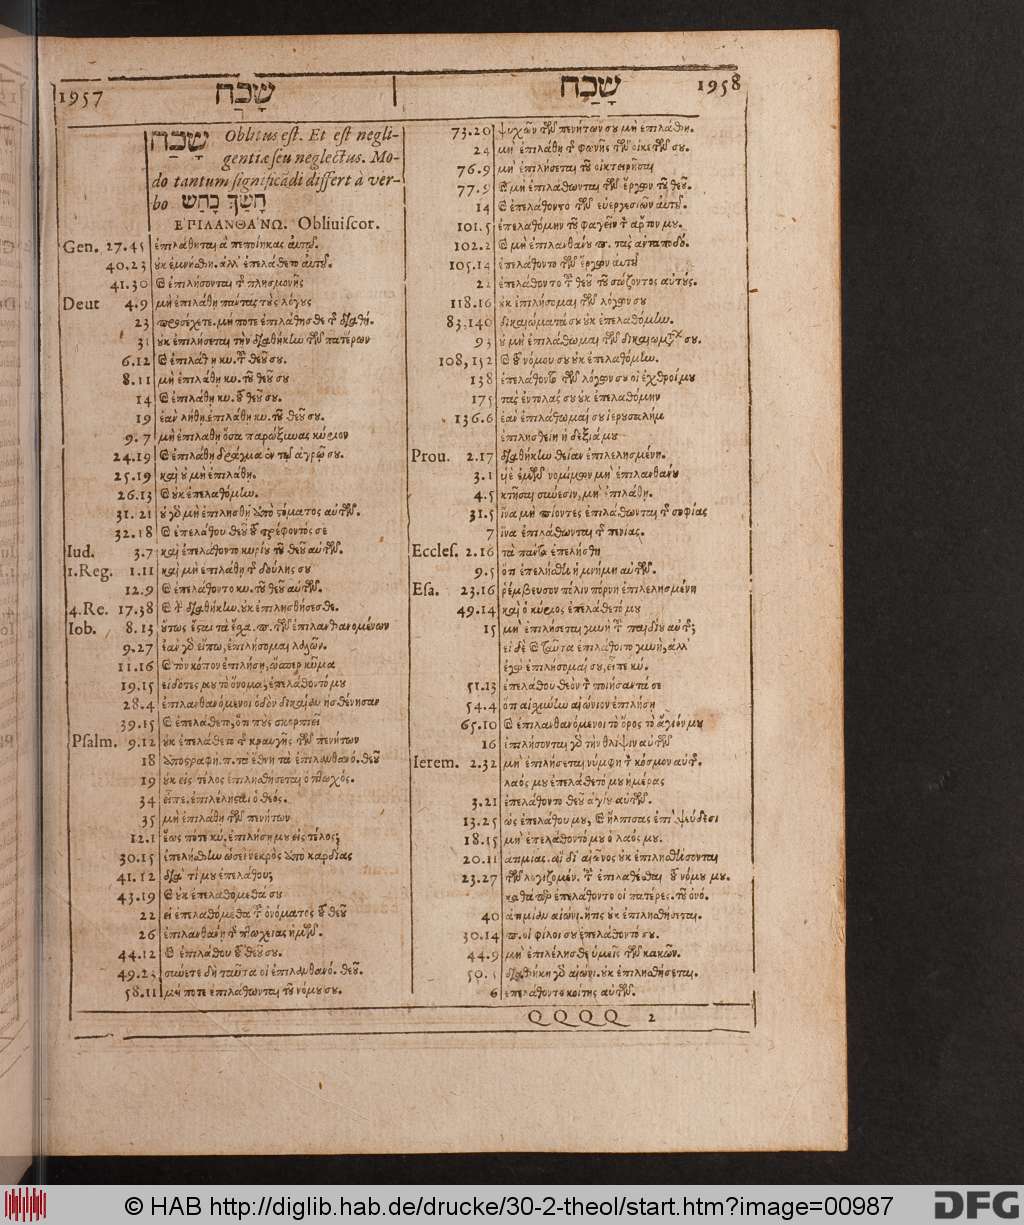 1957
שָׁכַח
שָׁכַח
1958
שָׁכַח Oblitus est. Et est negli-
gentiæ seu neglectus. Mo-
do tantum significādi differt à ver-
bo
ΕΠΙΛΑΝΘΑΝΩ. Obliuiscor.
Gen. 27.45 ἐπιλάθηται ἃ πεποίηκας αὐτῷ.
40.23 ἀλλ' ἐπελάθετο αὐτοῦ.
41.30 ἐπιλήσονται πλησμονῆς
Deut 4.9 μὴ ἐπιλάθῃ πάντας τοὺς λόγους
23 προσέχετε. μή ποτε ἐπιλάθησθε
31 οὐκ ἐπιλήσεται τὴν διαθήκην τῶν πατέρων
6.12 ἐπιλάθῃ κυ. τοῦ θεοῦ σου.
8.11 μὴ ἐπιλάθῃ κυ. τοῦ θεοῦ σου
14 ἐπιλάθῃ κυ. τοῦ θεοῦ σου.
19 ἐὰν λήθῃ ἐπιλάθῃ κυ. τοῦ θεοῦ σου.
9.7 μὴ ἐπιλάθῃ ὅσα παρώξυνας κύριον
24.19 ἐπιλάθῃ δράγμα ἐν τῷ ἀγρῷ σου.
25.19 καὶ οὐ μὴ ἐπιλάθῃ.
26.13 οὐκ ἐπελαθόμην.
31.21 στόματος αὐτῶν.
32.18 ἐπελάθου θεοῦ τοῦ τρέφοντός σε
Iud. 3.7 καὶ ἐπελάθοντο κυρίου τοῦ θεοῦ αὐτῶν.
1.Reg. 1.11 καὶ μὴ ἐπιλάθῃ τῆς δούλης σου
12.9 ἐπελάθοντο κυ. τοῦ θεοῦ αὐτῶν.
4.Re. 17.38 διαθήκην. οὐκ ἐπιλησθήσεσθε.
Iob. 8.13 οὕτως ἔσται τὰ ἔσχα. π. τῶν ἐπιλανθανομένων
9.27 ἐὰν γὰρ εἴπω, ἐπιλήσομαι λαλῶν.
11.16 τὸν κόπον ἐπιλήσῃ, ὥσπερ κῦμα
19.15 εἰδότες μου τὸ ὄνομα, ἐπελάθοντό μου
28.4 ἐπιλανθανόμενοι ὁδὸν δικαίαν ἠσθένησαν
39.15 ἐπελάθετο, ὅτι ποὺς σκορπιεῖ
Psalm. 9.12 οὐκ ἐπελάθετο τῆς κραυγῆς τῶν πενήτων
18 π. τὰ ἔθνη τὰ ἐπιλανθανό. θεοῦ
19 οὐκ εἰς τέλος ἐπιλησθήσεται ὁ πτωχός.
34 εἶπε. ἐπιλέλησται ὁ θεός.
35 μὴ ἐπιλάθῃ τῶν πενήτων
12.1 ἕως πότε κύ. ἐπιλήσῃ μου εἰς τέλος;
30.15 ἐπελήσθην ὡσεὶ νεκρὸς ἀπὸ καρδίας
41.12 διὰ τί μου ἐπελάθου;
43.19 οὐκ ἐπελαθόμεθά σου
22 εἰ ἐπελαθόμεθα τοῦ ὀνόματος τοῦ θεοῦ
26 ἐπιλανθάνῃ τῆς πτωχείας ἡμῶν.
44.12 ἐπιλάθου τοῦ θεοῦ σου.
49.23 σύνετε δὴ ταῦτα οἱ ἐπιλανθανό. θεοῦ.
58.11 μή ποτε ἐπιλάθωνται τοῦ νόμου σου.
73.20 ψυχῶν τῶν πενήτων σου μὴ ἐπιλάθῃ.
24 μὴ ἐπιλάθῃ τῆς φωνῆς τῶν οἰκετῶν σου.
76.9 μὴ ἐπιλήσεται τοῦ οἰκτειρῆσαι
77.9 μὴ ἐπιλάθωνται τῶν ἔργων τοῦ θεοῦ.
14 ἐπελάθοντο τῶν εὐεργεσιῶν αὐτοῦ.
101.5 ἐπελαθόμην τοῦ φαγεῖν τὸν ἄρτον μου.
102.2 μὴ ἐπιλανθάνου π. τὰς ἀνταποδό.
105.14 ἐπελάθοντο τῶν ἔργων αὐτοῦ
22 ἐπελάθοντο τοῦ θεοῦ τοῦ σώζοντος αὐτούς.
118.16 οὐκ ἐπιλήσομαι τῶν λόγων σου
83,140 δικαιώματά σου οὐκ ἐπελαθόμην.
93 οὐ μὴ ἐπιλάθωμαι τῶν δικαιωμάτων σου.
108,152 τοῦ νόμου σου οὐκ ἐπελαθόμην.
138 ἐπελάθοντο τῶν λόγων σου οἱ ἐχθροί μου
175 τὰς ἐντολάς σου οὐκ ἐπελαθόμην
136.6 ἐὰν ἐπιλάθωμαί σου ἱερουσαλήμ
ἐπιλησθείη ἡ δεξιά μου
Prou. 2.17 διαθήκην θείαν ἐπιλελησμένη.
3.1 υἱὲ ἐμῶν νομίμων μὴ ἐπιλανθάνου
4.5 μὴ ἐπιλάθῃ.
31.5 ἵνα μὴ πιόντες ἐπιλάθωνται τῆς σοφίας
7 ἵνα ἐπιλάθωνται τῆς πενίας.
Eccles. 2.16 τὰ πάντα ἐπελήσθη
9.5 ὅτι ἐπελήσθη ἡ μνήμη αὐτῶν.
Esa. 23.16 ῥέμβευσον πόλιν πόρνη ἐπιλελησμένη
49.14 καὶ ὁ κύριος ἐπελάθετό μου
15 μὴ ἐπιλήσεται γυνὴ τοῦ παιδίου αὐτῆς;
εἰ δὲ ταῦτα ἐπιλάθοιτο γυνή, ἀλλ'
ἐγὼ ἐπιλήσομαί σου, εἶπε κύ.
51.13 ἐπελάθου θεὸν τὸν ποιήσαντά σε
54.4 ὅτι αἰσχύνην αἰώνιον ἐπιλήσῃ
65.10 ἐπιλανθανόμενοι τὸ ὄρος τὸ ἅγιόν μου
16 ἐπιλήσονται γὰρ τὴν θλῖψιν αὐτῶν
Ierem. 2.32 μὴ ἐπιλήσεται νύμφη τὸν κόσμον αὐτῆς.
λαός μου ἐπελάθετό μου ἡμέρας
3.21 ἐπελάθοντο θεοῦ ἁγίου αὐτῶν.
13.25 ὡς ἐπελάθου μου, ἤλπισας ἐπὶ ψεύδεσι
18.15 μὴ ἐπελάθοντό μου ὁ λαός μου.
20.11 ἀτιμίας. αἳ δι' αἰῶνος οὐκ ἐπιλησθήσονται
23.27 τῶν λογιζομέν. τοῦ ἐπιλαθέσθαι τοῦ νόμου μου.
καθάπερ ἐπελάθοντο οἱ πατέρες. τοῦ ὀνό.
40 ἀτιμίαν αἰώνι. ἥτις οὐκ ἐπιλησθήσεται.
30.14 π. οἱ φίλοι σου ἐπελάθοντό σου.
44.9 μὴ ἐπιλέλησθε ὑμεῖς τῶν κακῶν.
50.5 διαθήκη γὰρ αἰώνι. οὐκ ἐπιλησθήσεται.
6 ἐπελάθοντο κοίτης αὐτῶν.
QQQQ 2
© HAB http://diglib.hab.de/drucke/30-2-theol/start.htm?image=00987
DFG